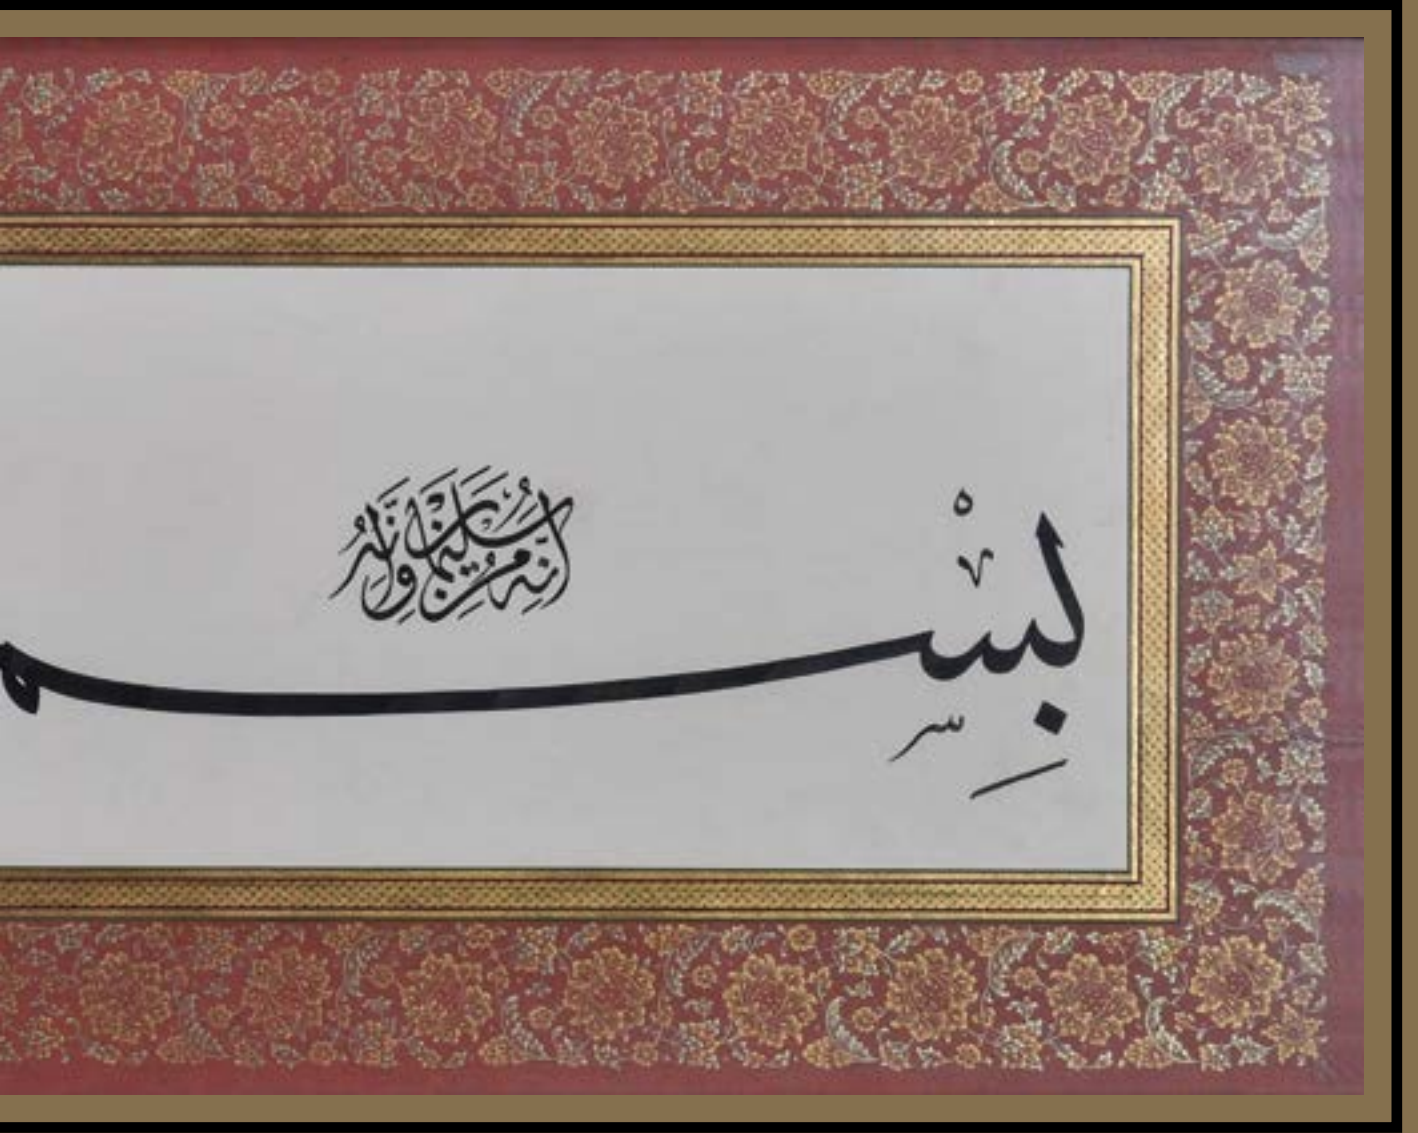 إِنَّهُ مِنْ سُلَيْمَانَ وَإِنَّهُ
بِسْم